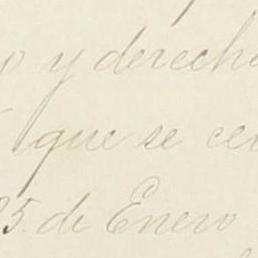 y derecho
que se
25. de Enero